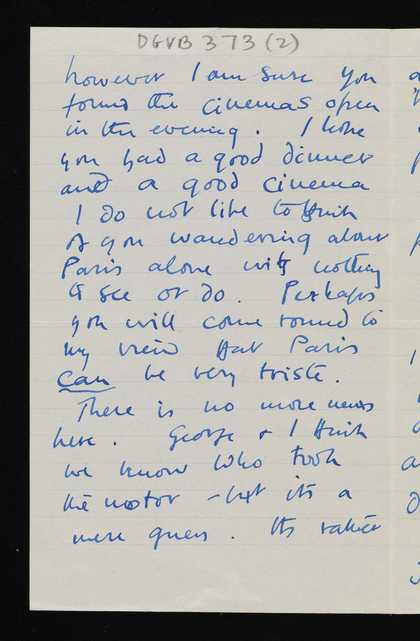 DGVB 373 (2)
however I am sure you
found the cinemas open
in the evening. I hope
you had a good dinner
and a good cinema
I do not like to think
of you wandering about
Paris alone with nothing
to see or do. Perhaps
you will come round to
my view that Paris
can be very triste.
There is no more news
here. George & I think
we know who took
the motor - but its a
mere guess. Its rather